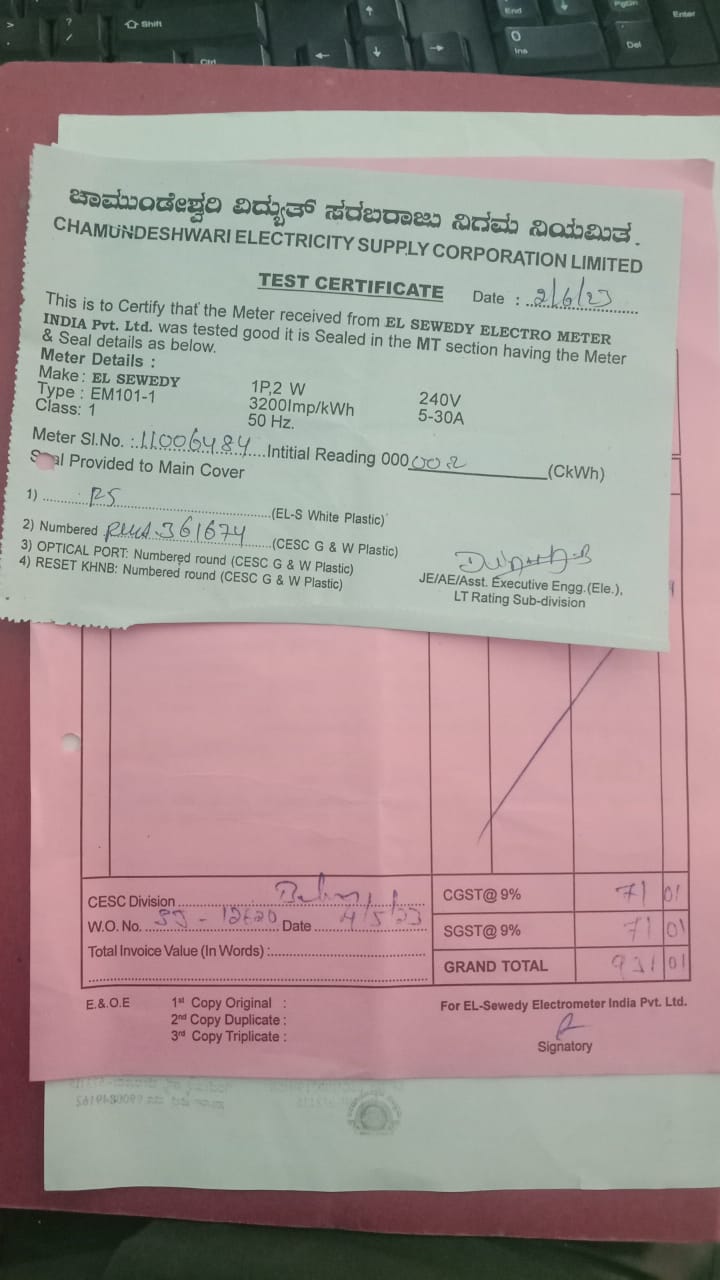 ಚಾಮುಂಡೇಶ್ವರಿ ವಿದ್ಯುತ್ ಸರಬರಾಜು ನಿಗಮ ನಿಯಮಿತ.
CHAMUNDESHWARI ELECTRICITY SUPPLY CORPORATION LIMITED
TEST CERTIFICATE Date : 2/6/23
This is to Certify that the Meter received from EL SEWEDY ELECTRO METER
INDIA Pvt. Ltd. was tested good it is Sealed in the MT section having the Meter
& Seal details as below.
Meter Details :
Make : EL SEWEDY 1P,2 W 240V
Type : EM101-1 3200Imp/kWh 5-30A
Class: 1 50 Hz.
Meter Sl.No. : 11006484 Intitial Reading 000 002 (CkWh)
Seal Provided to Main Cover
1) RS (EL-S White Plastic)
2) Numbered 361674 (CESC G & W Plastic)
3) OPTICAL PORT: Numbered round (CESC G & W Plastic)
4) RESET KHNB: Numbered round (CESC G & W Plastic)
JE/AE/Asst. Executive Engg.(Ele.),
LT Rating Sub-division
CESC Division CGST@ 9% 71 01
W.O. No. Date 4/5/23 SGST@ 9% 71 01
Total Invoice Value (In Words) : GRAND TOTAL 931 01
E.&.O.E 1st Copy Original : For EL-Sewedy Electrometer India Pvt. Ltd.
2nd Copy Duplicate :
3rd Copy Triplicate : Signatory
Shift
Ctrl
End
PgDn
Enter
0
Ins
Del